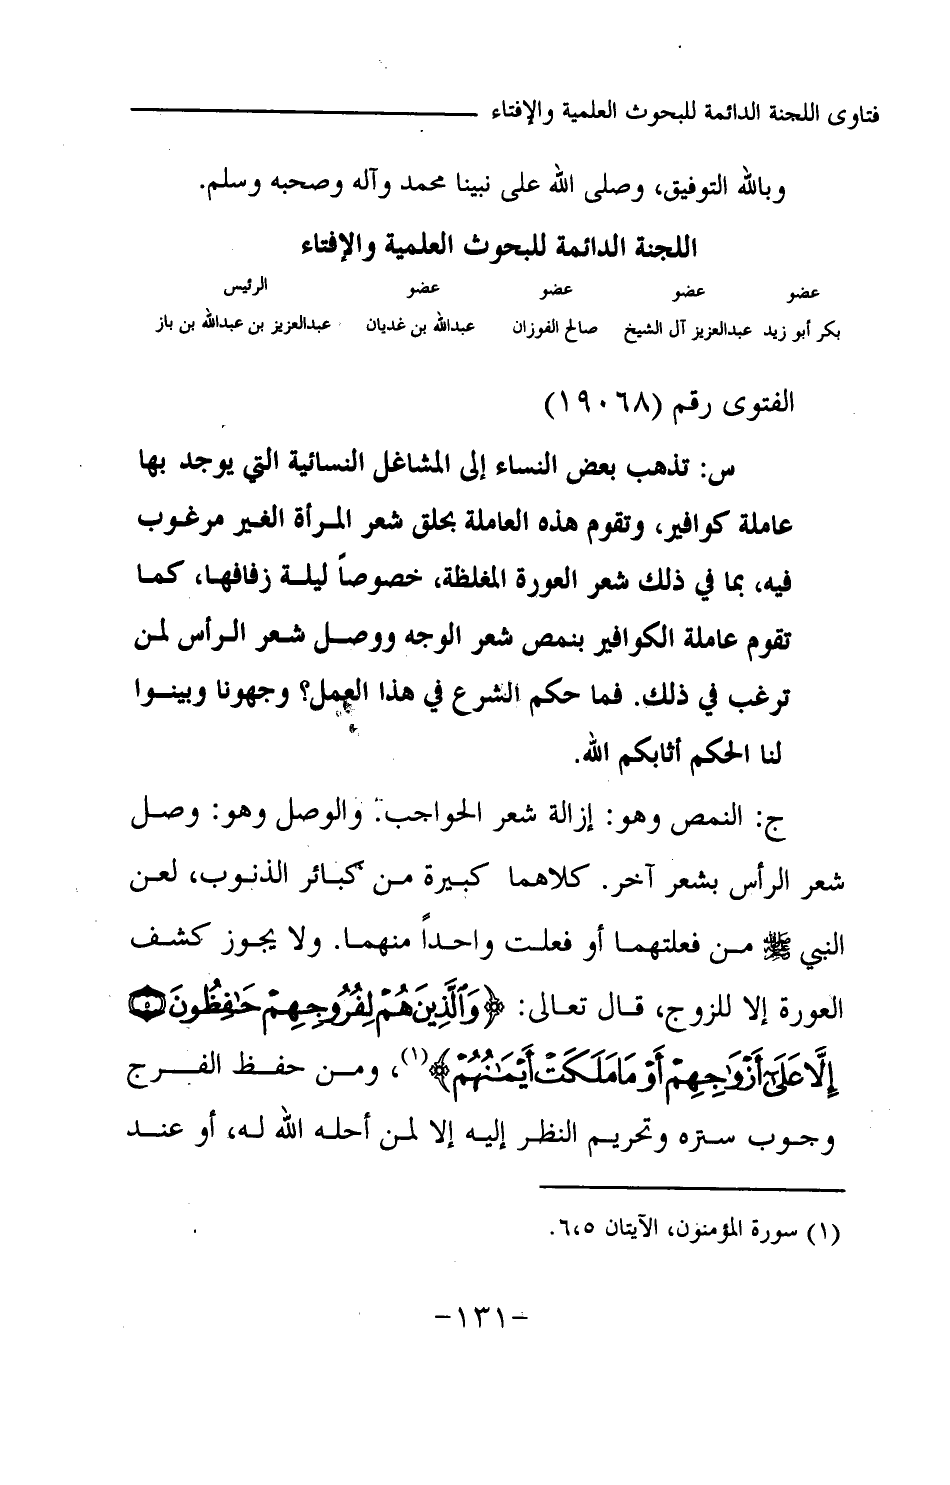 فتاوى اللجنة الدائمة للبحوث العلمية والإفتاء
وبالله التوفيق، وصلى الله على نبينا محمد وآله وصحبه وسلم.
اللجنة الدائمة للبحوث العلمية والإفتاء
عضو عضو عضو عضو الرئيس
بكر أبو زيد عبدالعزيز آل الشيخ صالح الفوزان عبدالله بن غديان عبدالعزيز بن عبدالله بن باز
الفتوى رقم (١٩٠٦٨)
س: تذهب بعض النساء إلى المشاغل النسائية التي يوجد بها
عاملة كوافير، وتقوم هذه العاملة بحلق شعر المرأة الغير مرغوب
فيه، بما في ذلك شعر العورة المغلظة، خصوصاً ليلة زفافها، كما
تقوم عاملة الكوافير بنمص شعر الوجه ووصل شعر الرأس لمن
ترغب في ذلك. فما حكم الشرع في هذا العمل؟ وجهونا وبينوا
لنا الحكم أثابكم الله.
ج: النمص وهو: إزالة شعر الحواجب. والوصل وهو: وصل
شعر الرأس بشعر آخر. كلاهما كبيرة من كبائر الذنوب، لعن
النبي ﷺ من فعلتهما أو فعلت واحداً منهما. ولا يجوز كشف
العورة إلا للزوج، قال تعالى: ﴿وَٱلَّذِينَ هُمْ لِفُرُوجِهِمْ حَٰفِظُونَ ٥
إِلَّا عَلَىٰٓ أَزْوَٰجِهِمْ أَوْ مَا مَلَكَتْ أَيْمَٰنُهُمْ﴾(١)، ومن حفظ الفرج
وجوب ستره وتحريم النظر إليه إلا لمن أحله الله له، أو عند
(١) سورة المؤمنون، الآيتان ٦،٥.
-١٣١-